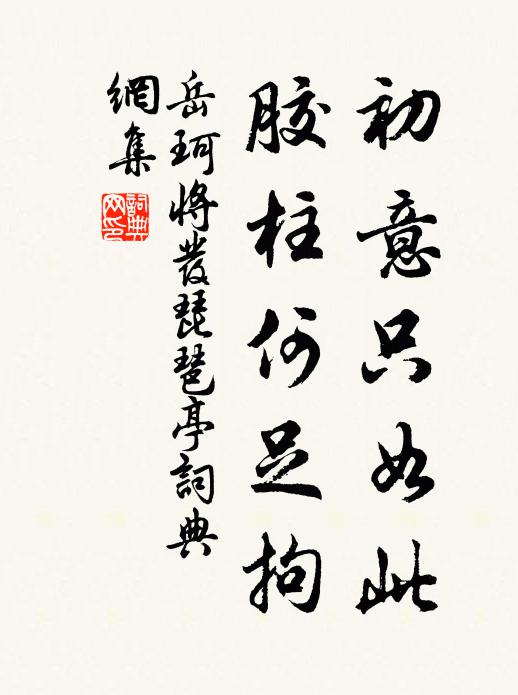 初意只如此
膠柱何足拘
岳珂將發琵琶亭詞典
網集
詞典網印